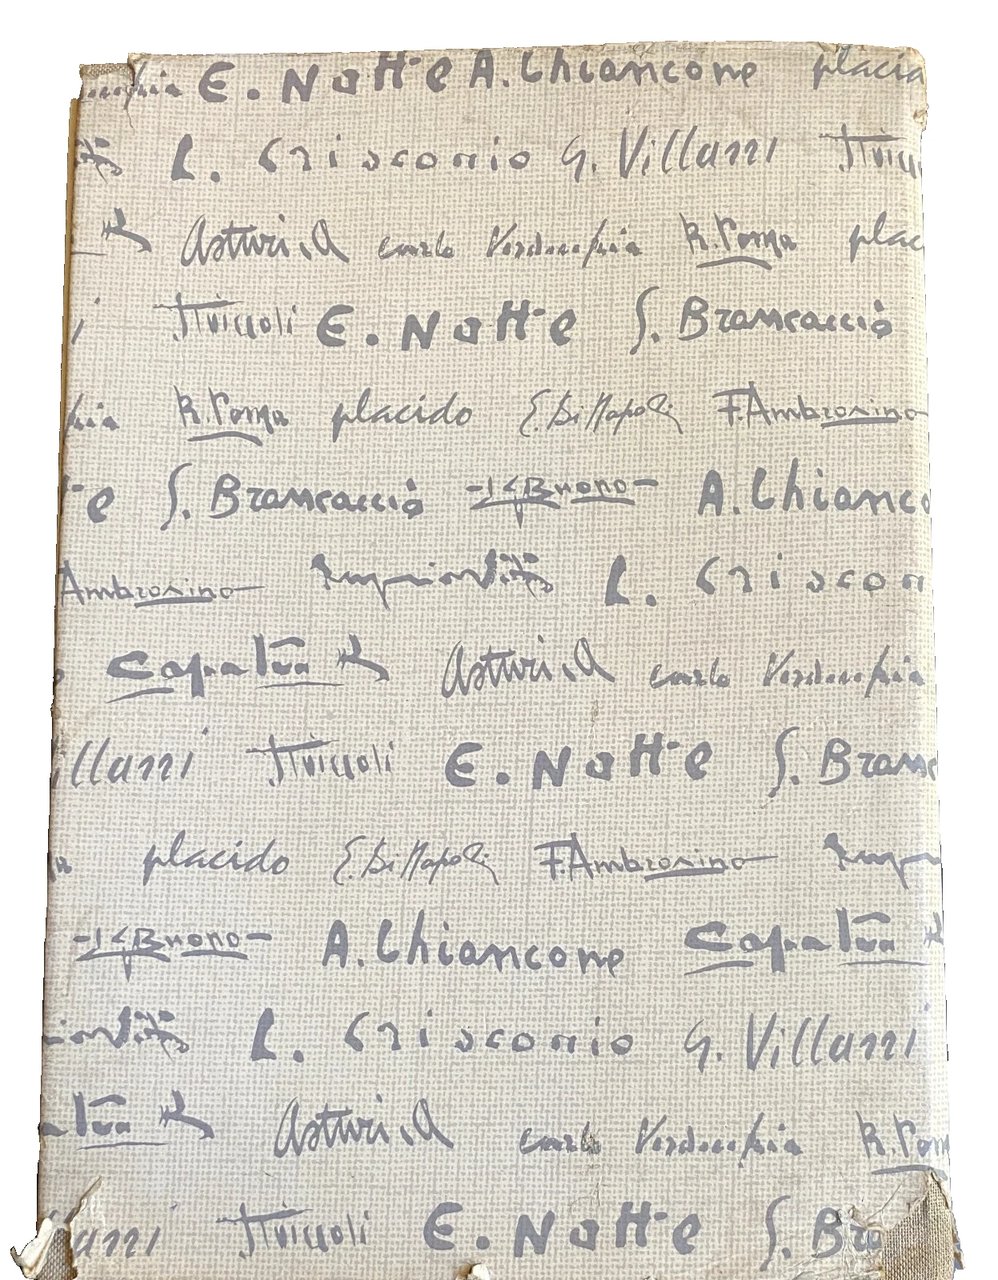 Verdecchia E. Notte A. Chiancone placid
L. Crisconio G. Villani
Asturi A carlo Verdecchia R. Roma plac
i Striccoli E. Notte G. Brancaccio
hia R. Roma placido E. Di Napoli F. Ambrosino
te G. Brancaccio Buono A. Chianco
Ambrosino L. Criscon
Capaldo Asturi A carlo Verdecchia
illani Striccoli E. Notte G. Branc
placido E. Di Napoli F. Ambrosino
Buono A. Chiancone
L. Crisconio G. Villani
Asturi A carlo Verdecchia R. Rom
lani Striccoli E. Notte G. Bra